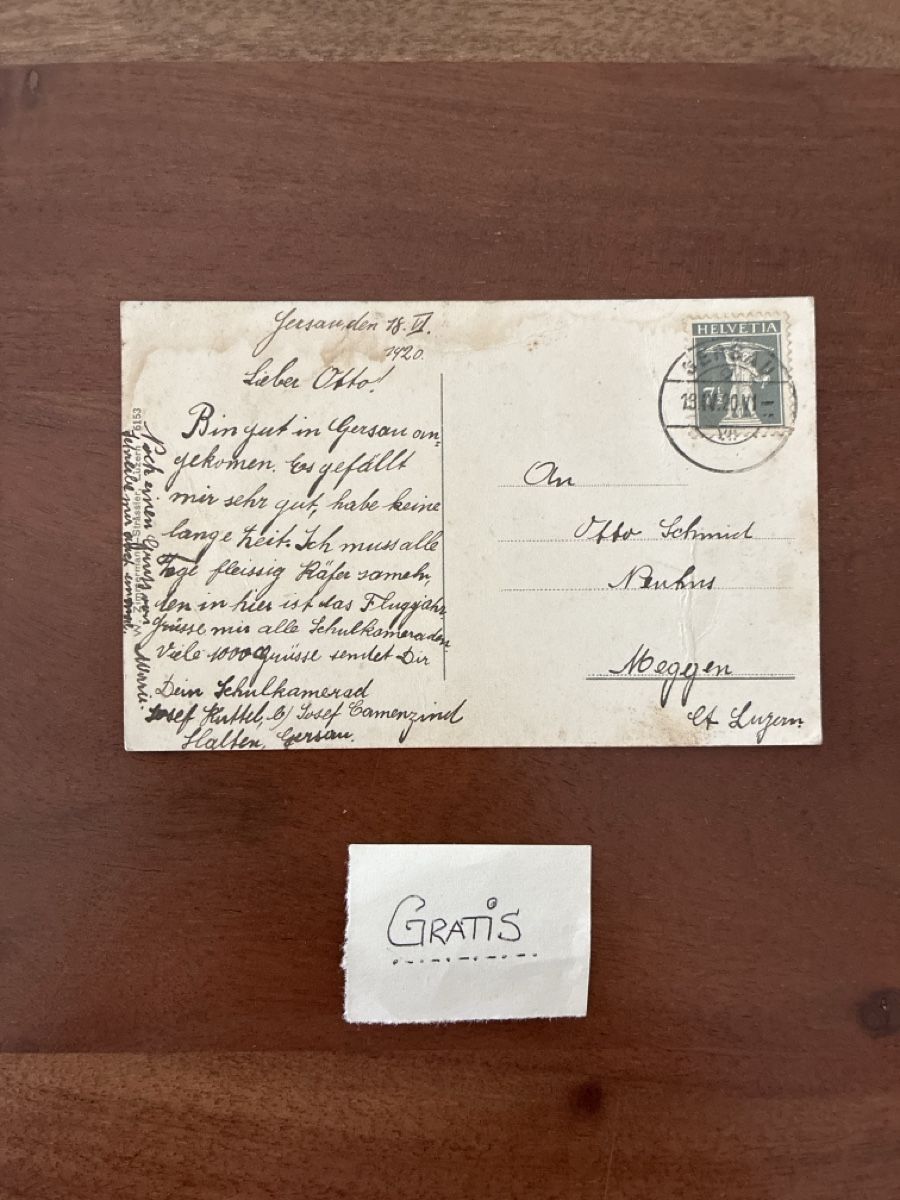 Gersau den 18. VI.
1920.
Lieber Otto!
Bin gut in Gersau an-
gekomen. Es gefällt
mir sehr gut, habe keine
lange Zeit. Ich muss alle
Tage fleissig Käfer sameln,
den in hier ist das Flugjahr
Grüsse mir alle Schulkameraden
Viele 1000 Grüsse sendet Dir
Dein Schulkamerad
Josef Kuttel, b/ Josef Camenzind
Halten, Gersau.
Noch einen Gruss von
schreibe mir auch einmal. Marie.
Strässle, Luzern 6153
HELVETIA
7½
GERSAU
An
Otto Schmid
Neuhus
Meggen
Ct. Luzern
GRATIS